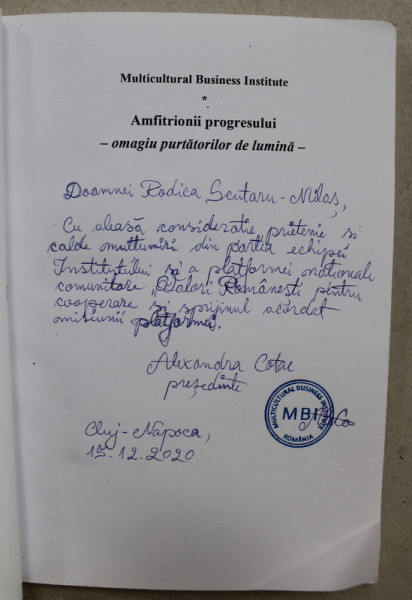 Multicultural Business Institute
*
Amfitrionii progresului
– omagiu purtătorilor de lumină –
Doamnei Rodica Scutaru-Milaș,
Cu aleasă considerație, prietenie și
calde mulțumiri din partea echipei
Institutului și a platformei naționale
comunitare „Valori Românești pentru
cooperare și sprijinul acordat
misiunii platformei.
Alexandra Cotae
președinte
MULTICULTURAL BUSINESS INSTITUTE
MBI
ROMÂNIA
Cluj-Napoca,
15-12.2020